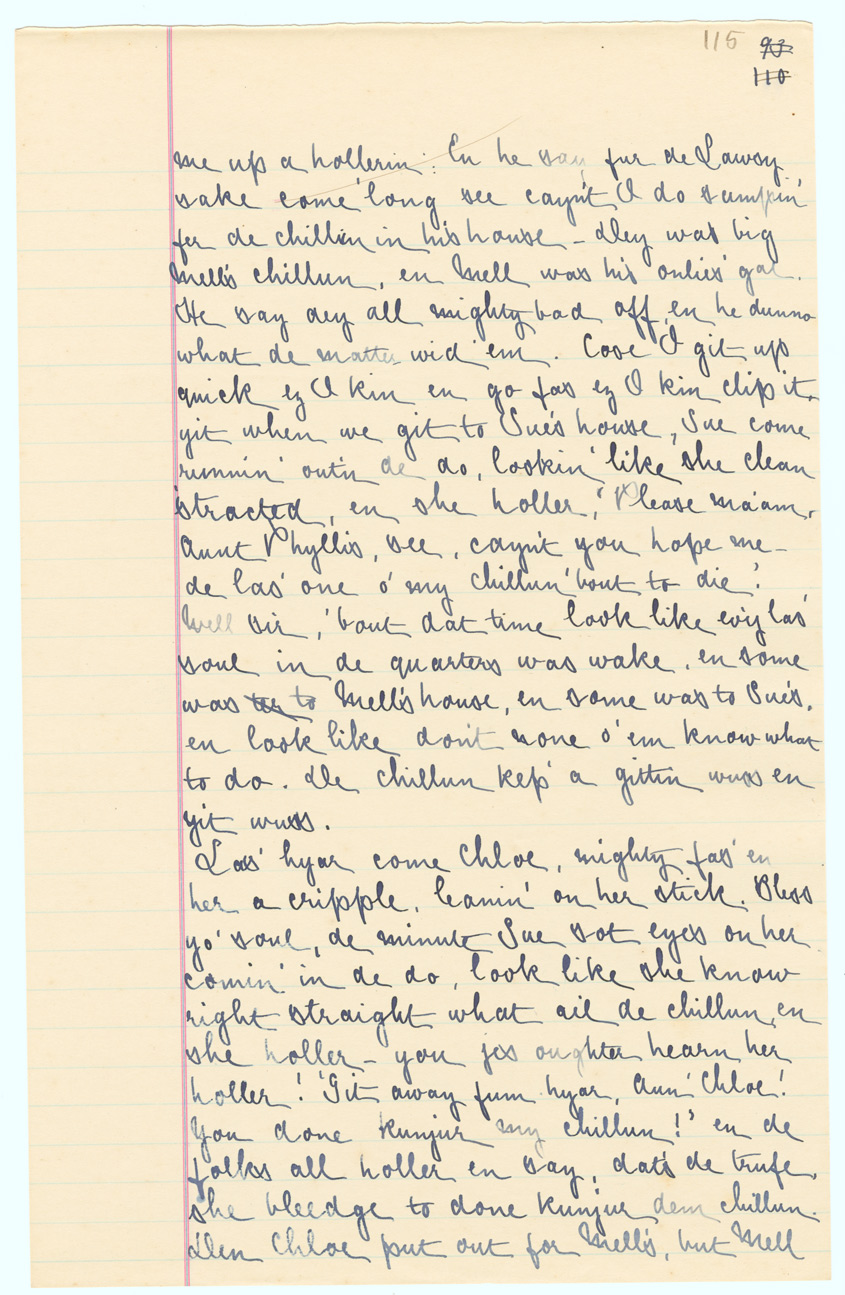 115 93
110
me up a hollerin: En he say fur de Lawsy
sake come 'long see cayn't I do sumpin'
fer de chillun in his house – Dey was big
Mell's chillun, en Mell was his onlies' gal.
He say dey all mighty bad off, en he dunno
what de matter wid 'em. Cose I git up
quick ez I kin en go fas ez I kin clip it,
yit when we git to Sue's house, Sue come
runnin' out'n de do, lookin' like she clean
'stracted, en she holler, 'Please ma'am,
Aunt Phyllis, see, cayn't you hope me –
de las' one o' my chillun 'bout to die'!
Well sir, 'bout dat time look like ev'y las'
soul in de quarters was wake, en some
was to Mell's house, en some was to Sue's,
en look like don't none o' em know what
to do. De chillun kep' a gittin wuss en
yit wuss.
Las' hyar come Chloe, mighty fas' en
her a cripple, leanin' on her stick. Bless
yo' soul, de minute Sue sot eyes on her
comin' in de do, look like she know
right straight what ail de chillun, en
she holler – you jes oughter hearn her
holler! 'Git away fum hyar, Aun' Chloe!
You done kunjur my chillun!' en de
folks all holler en say, dat's de trufe,
she bleedge to done kunjur dem chillun.
Den Chloe put out for Mell's, but Mell